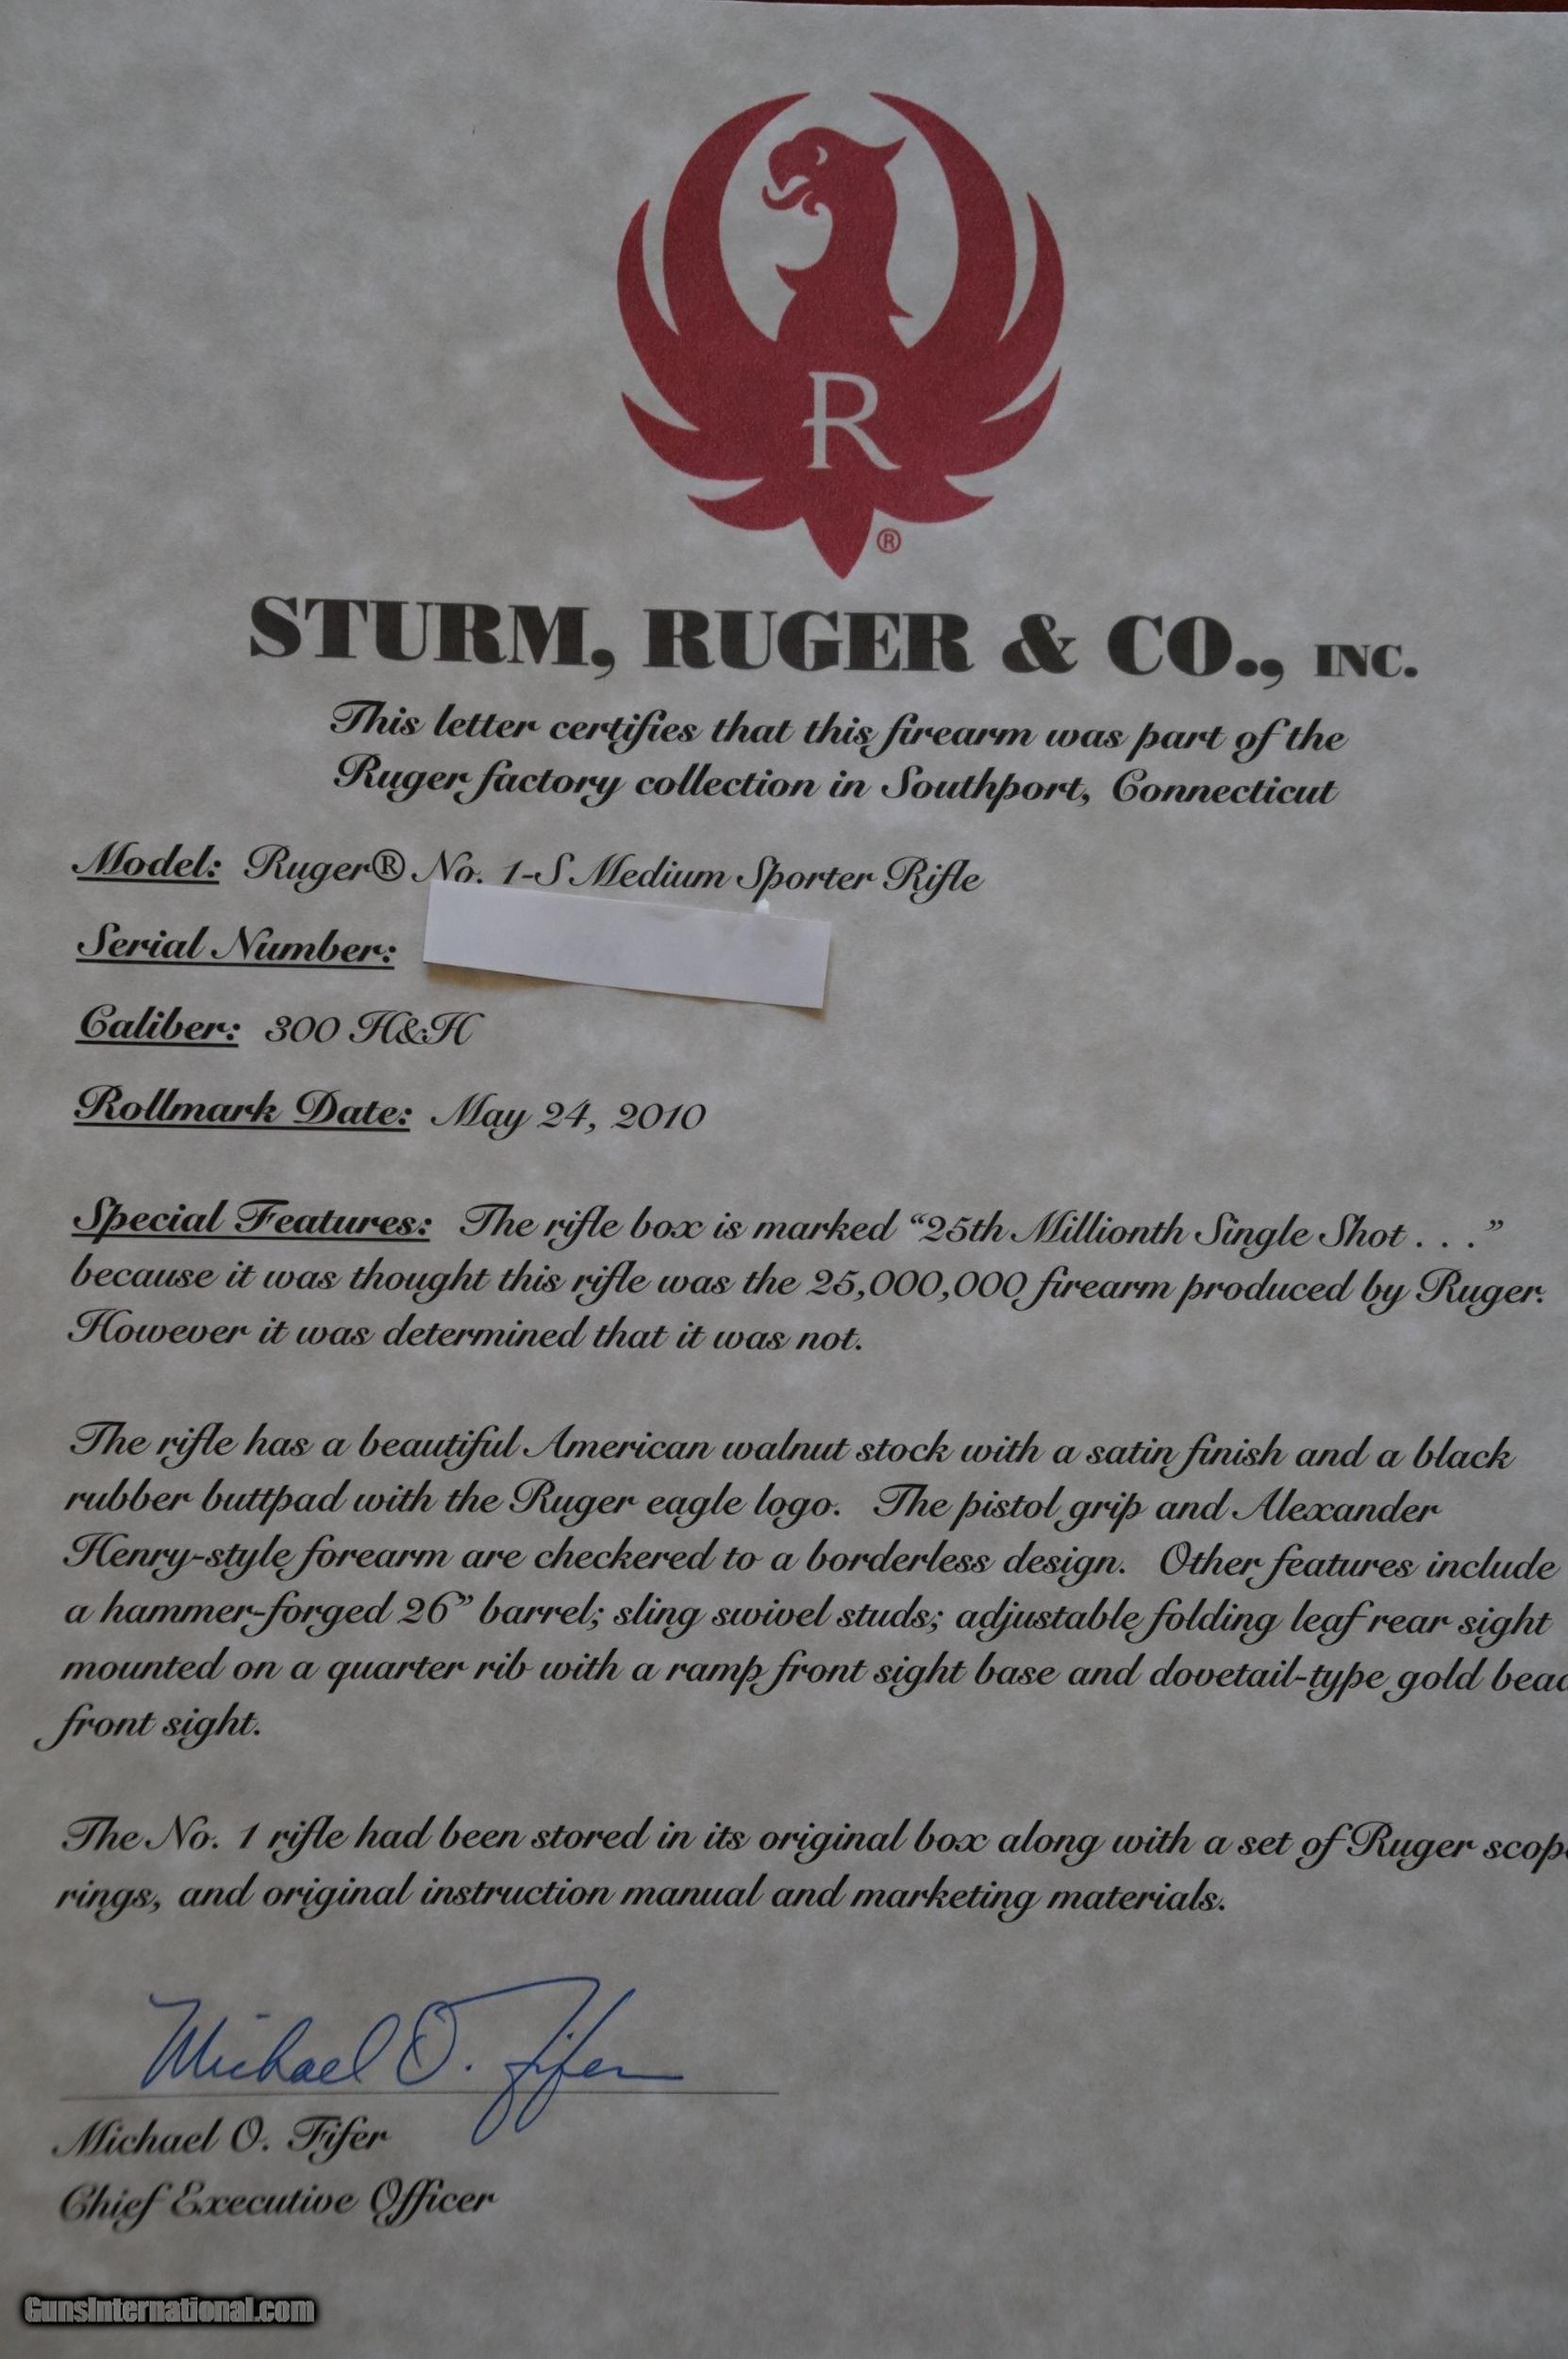 R
®
STURM, RUGER & CO., INC.
This letter certifies that this firearm was part of the
Ruger factory collection in Southport, Connecticut
Model: Ruger® No. 1-S Medium Sporter Rifle
Serial Number:
Caliber: 300 H&H
Rollmark Date: May 24, 2010
Special Features: The rifle box is marked “25th Millionth Single Shot . . .”
because it was thought this rifle was the 25,000,000 firearm produced by Ruger.
However it was determined that it was not.
The rifle has a beautiful American walnut stock with a satin finish and a black
rubber buttpad with the Ruger eagle logo. The pistol grip and Alexander
Henry-style forearm are checkered to a borderless design. Other features include
a hammer-forged 26” barrel; sling swivel studs; adjustable folding leaf rear sight
mounted on a quarter rib with a ramp front sight base and dovetail-type gold bead
front sight.
The No. 1 rifle had been stored in its original box along with a set of Ruger scope
rings, and original instruction manual and marketing materials.
Michael O. Fifer
Michael O. Fifer
Chief Executive Officer
GunsInternational.com